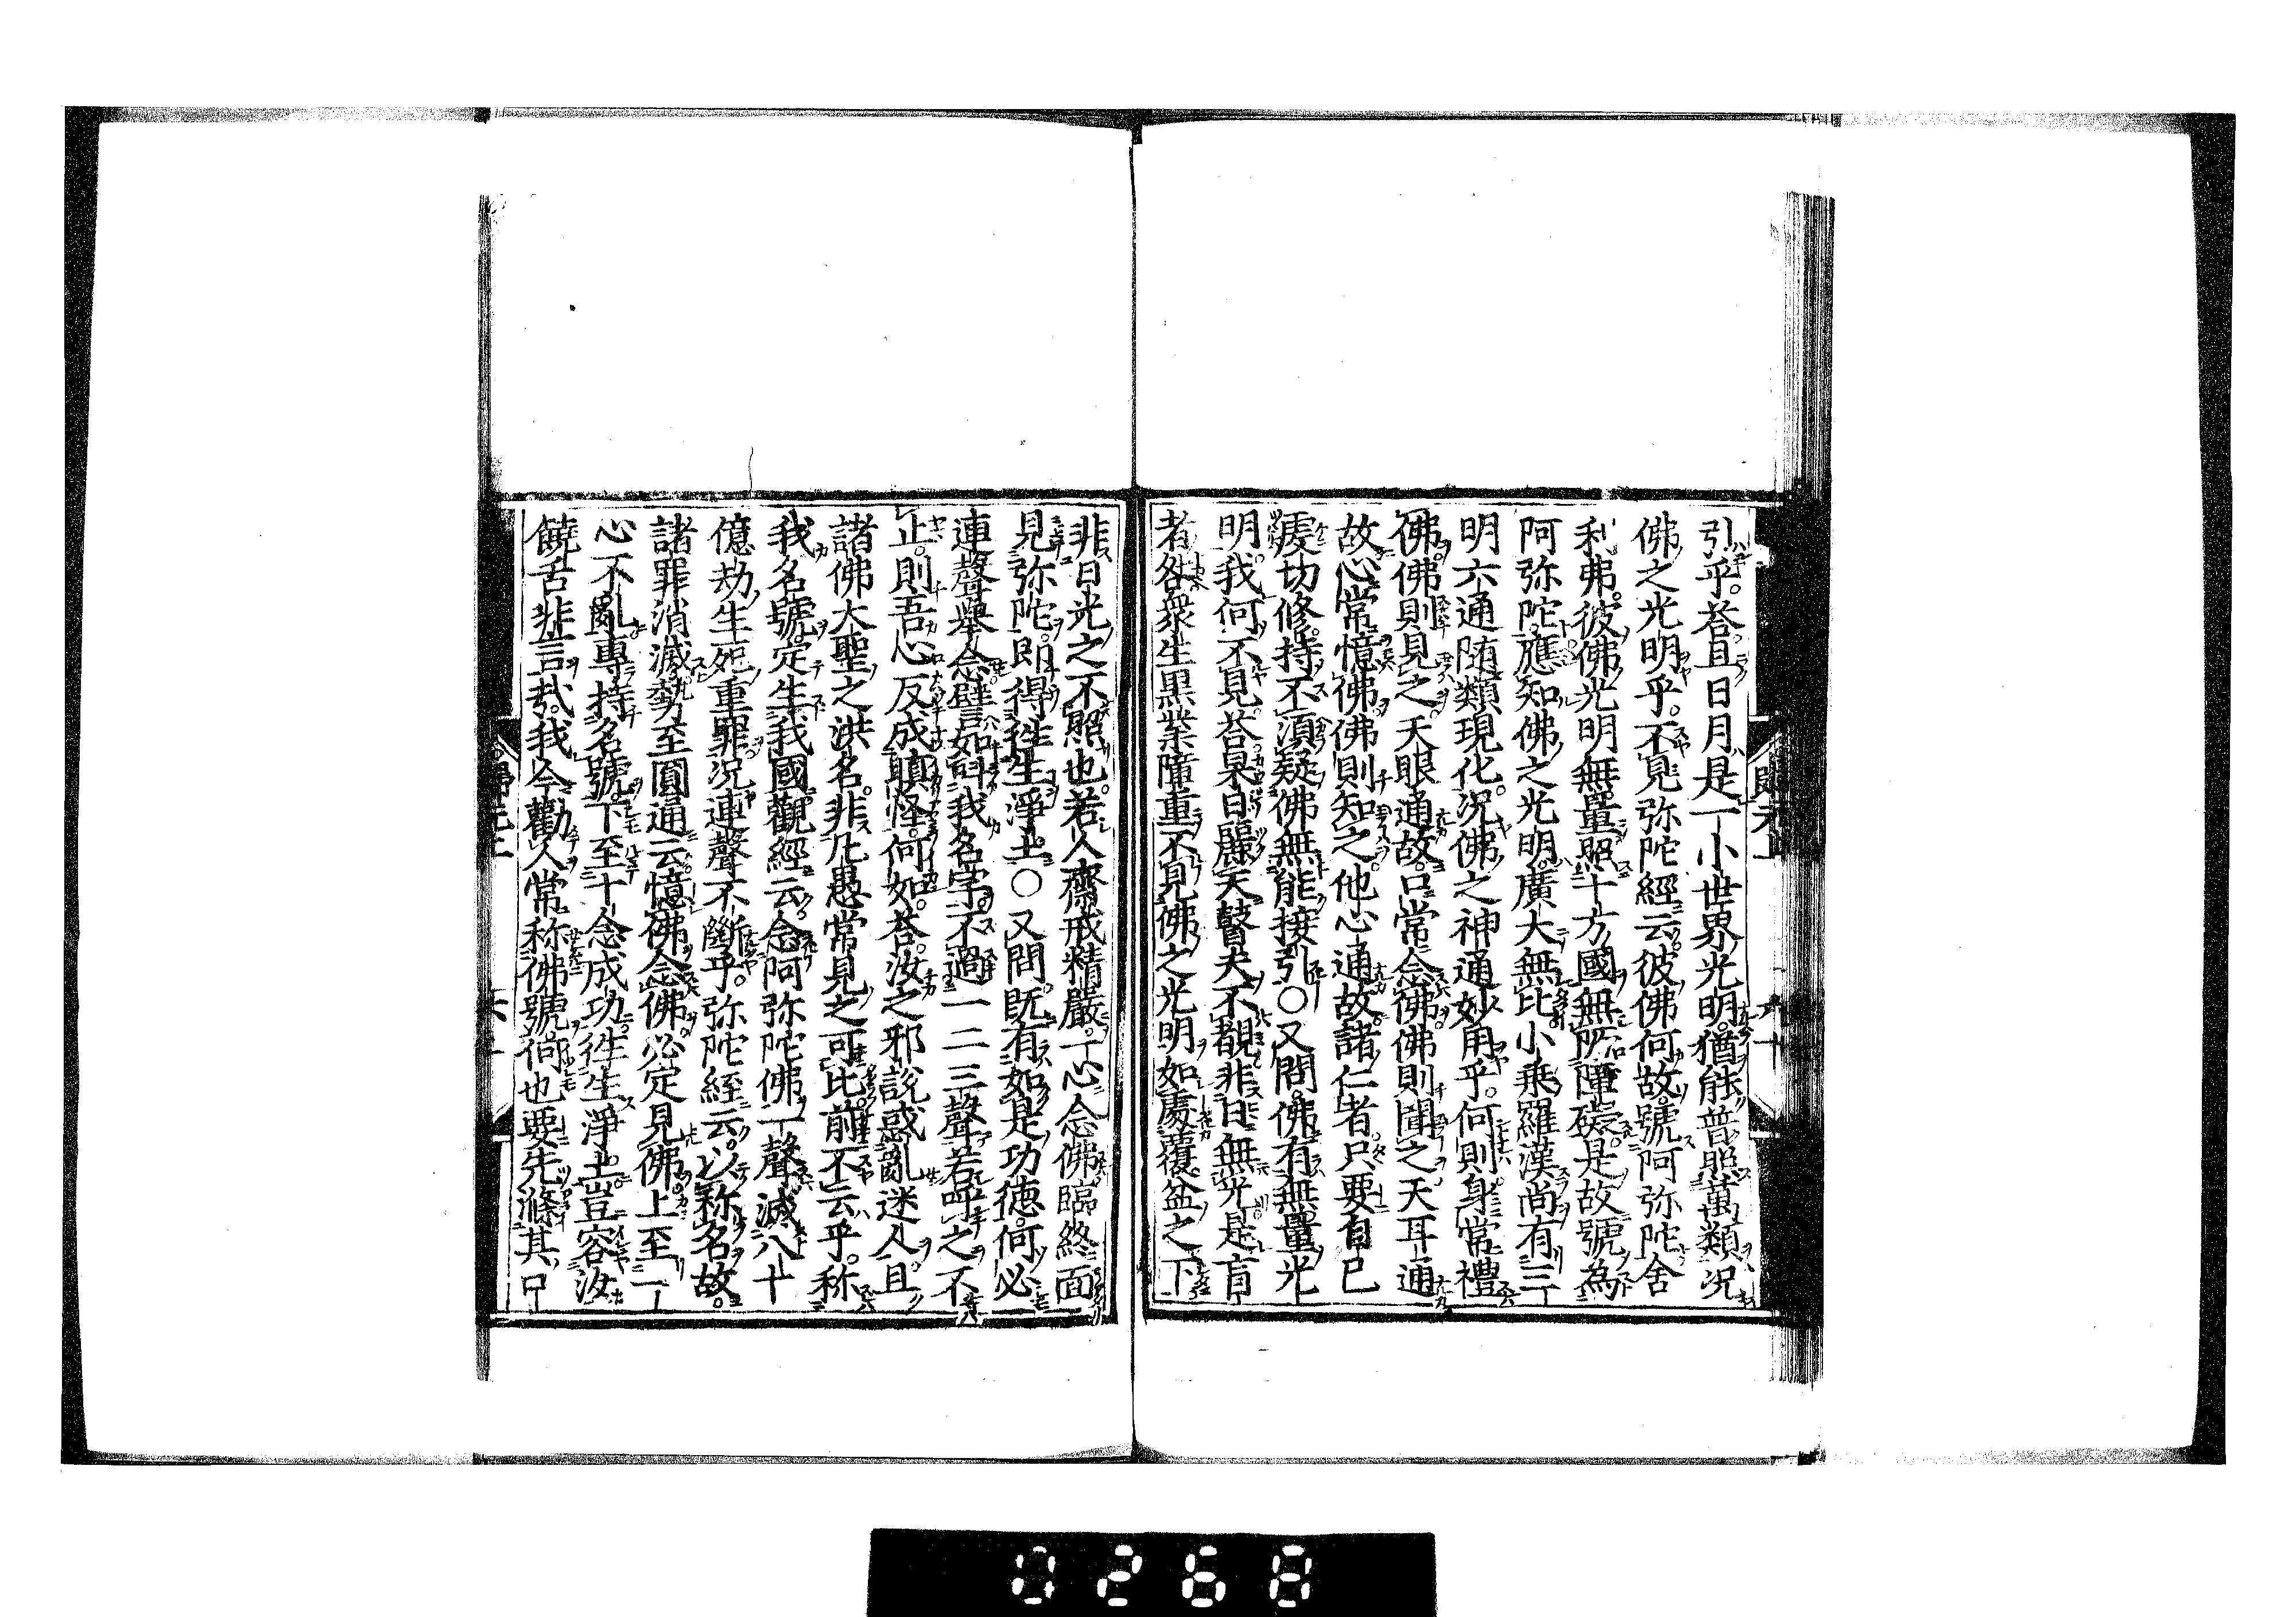 引乎。荅且日月是一小世界光明。猶能普照萬類況
佛之光明乎。不見弥陀經云彼佛何故。號阿弥陀舍
利弗。彼佛光明無量照十方國無所障碍是故號為
阿弥陀。應知佛之光明。廣大無比小乗羅漢尚有三
明六通随類現化。況佛之神通妙用乎。何則身常禮
佛。佛則見之。天眼通故。口常念佛。佛則聞之天耳通
故。心常憶佛佛則知之。他心通故諸仁者只要自已
處切修持。不須疑佛無能接引〇又問。佛有無量光
明。我何不見荅杲日麗天瞽夫不覩非日無光是盲
者咎衆生黒業障重不見佛之光明如處覆盆之下
非日光之不照也。若人齋戒精嚴。一心念佛臨終面
見弥陀。即得徃生淨土。〇又問。既有如是功德。何必
連聲舉念。譬如呌我名字。不過一二三聲若呼之不
止。則吾心反成嗔怪。何如。荅。汝之邪說惑亂迷人。且
諸佛大聖之洪名。非凡愚常見之可比。前不云乎。称
我名號定生我國觀經云。念阿弥陀佛一聲滅八十
億劫生死重罪。況連聲不斷乎。弥陀經云。以称名故。
諸罪消滅勢至圓通云。憶佛念佛。必定見佛。上至一
心不亂專持名號。下至十念成功。徃生淨土豈容汝
饒舌非言哉。我今勸人常称佛號徜也要先滌其口
歸元上
六十
0268